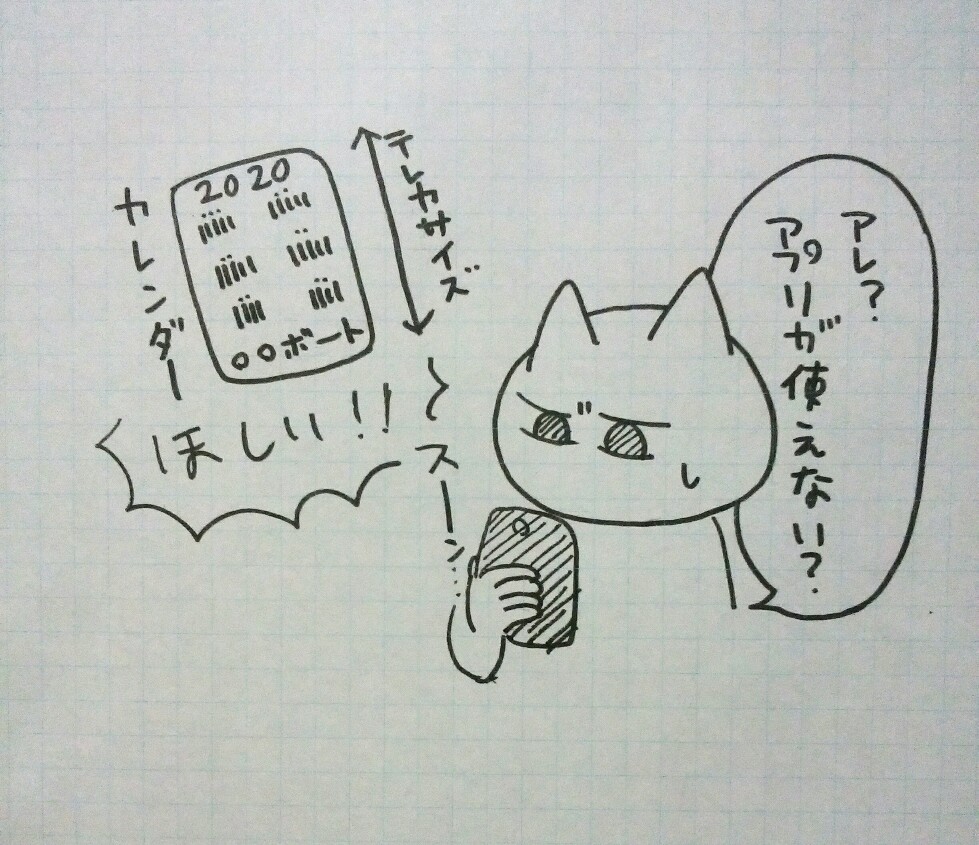 アレ?
アプリが使えない?
テレカサイズ
2020
○○ボート
カレンダー
ほしい!!
〜スーン…